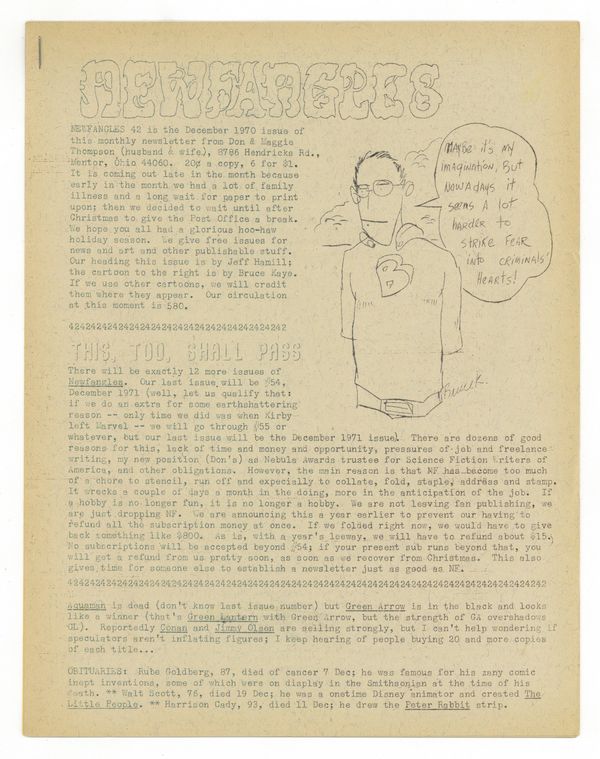 NEWFANGLES
NEWFANGLES 42 is the December 1970 issue of
this monthly newsletter from Don & Maggie
Thompson (husband & wife), 8786 Hendricks Rd.,
Mentor, Ohio 44060. 20¢ a copy, 6 for $1.
It is coming out late in the month because
early in the month we had a lot of family
illness and a long wait for paper to print
upon; then we decided to wait until after
Christmas to give the Post Office a break.
We hope you all had a glorious hoo-haw
holiday season. We give free issues for
news and art and other publishable stuff.
Our heading this issue is by Jeff Hamill;
the cartoon to the right is by Bruce Kaye.
If we use other cartoons, we will credit
them where they appear. Our circulation
at this moment is 580.
MAYBE it's my
imagination, BUT
NOWADAYS it
seems A lot
harder to
strike fear
into criminals'
hearts!
B
BruceK.
424242424242424242424242424242424242424242
THIS, TOO, SHALL PASS
There will be exactly 12 more issues of
Newfangles. Our last issue will be #54,
December 1971 (well, let us qualify that:
if we do an extra for some earthshattering
reason -- only time we did was when Kirby
left Marvel -- we will go through #55 or
whatever, but our last issue will be the December 1971 issue). There are dozens of good
reasons for this, lack of time and money and opportunity, pressures of job and freelance
writing, my new position (Don's) as Nebula Awards trustee for Science Fiction Writers of
America, and other obligations. However, the main reason is that NF has become too much
of a chore to stencil, run off and expecially to collate, fold, staple, address and stamp.
It wrecks a couple of days a month in the doing, more in the anticipation of the job. If
a hobby is no longer fun, it is no longer a hobby. We are not leaving fan publishing, we
are just dropping NF. We are announcing this a year earlier to prevent our having to
refund all the subscription money at once. If we folded right now, we would have to give
back something like $800. As is, with a year's leeway, we will have to refund about $15.
No subscriptions will be accepted beyond #54; if your present sub runs beyond that, you
will get a refund from us pretty soon, as soon as we recover from Christmas. This also
gives time for someone else to establish a newsletter just as good as NF.
4242424242424242424242424242424242424242424242424242424242424242424242424242424242424242
Aquaman is dead (don't know last issue number) but Green Arrow is in the black and looks
like a winner (that's Green Lantern with Green Arrow, but the strength of GA overshadows
GL). Reportedly Conan and Jimmy Olsen are selling strongly, but I can't help wondering if
speculators aren't inflating figures; I keep hearing of people buying 20 and more copies
of each title...
OBITUARIES: Rube Goldberg, 87, died of cancer 7 Dec; he was famous for his zany comic
inept inventions, some of which were on display in the Smithsonian at the time of his
death. ** Walt Scott, 76, died 19 Dec; he was a onetime Disney animator and created The
Little People. ** Harrison Cady, 93, died 11 Dec; he drew the Peter Rabbit strip.